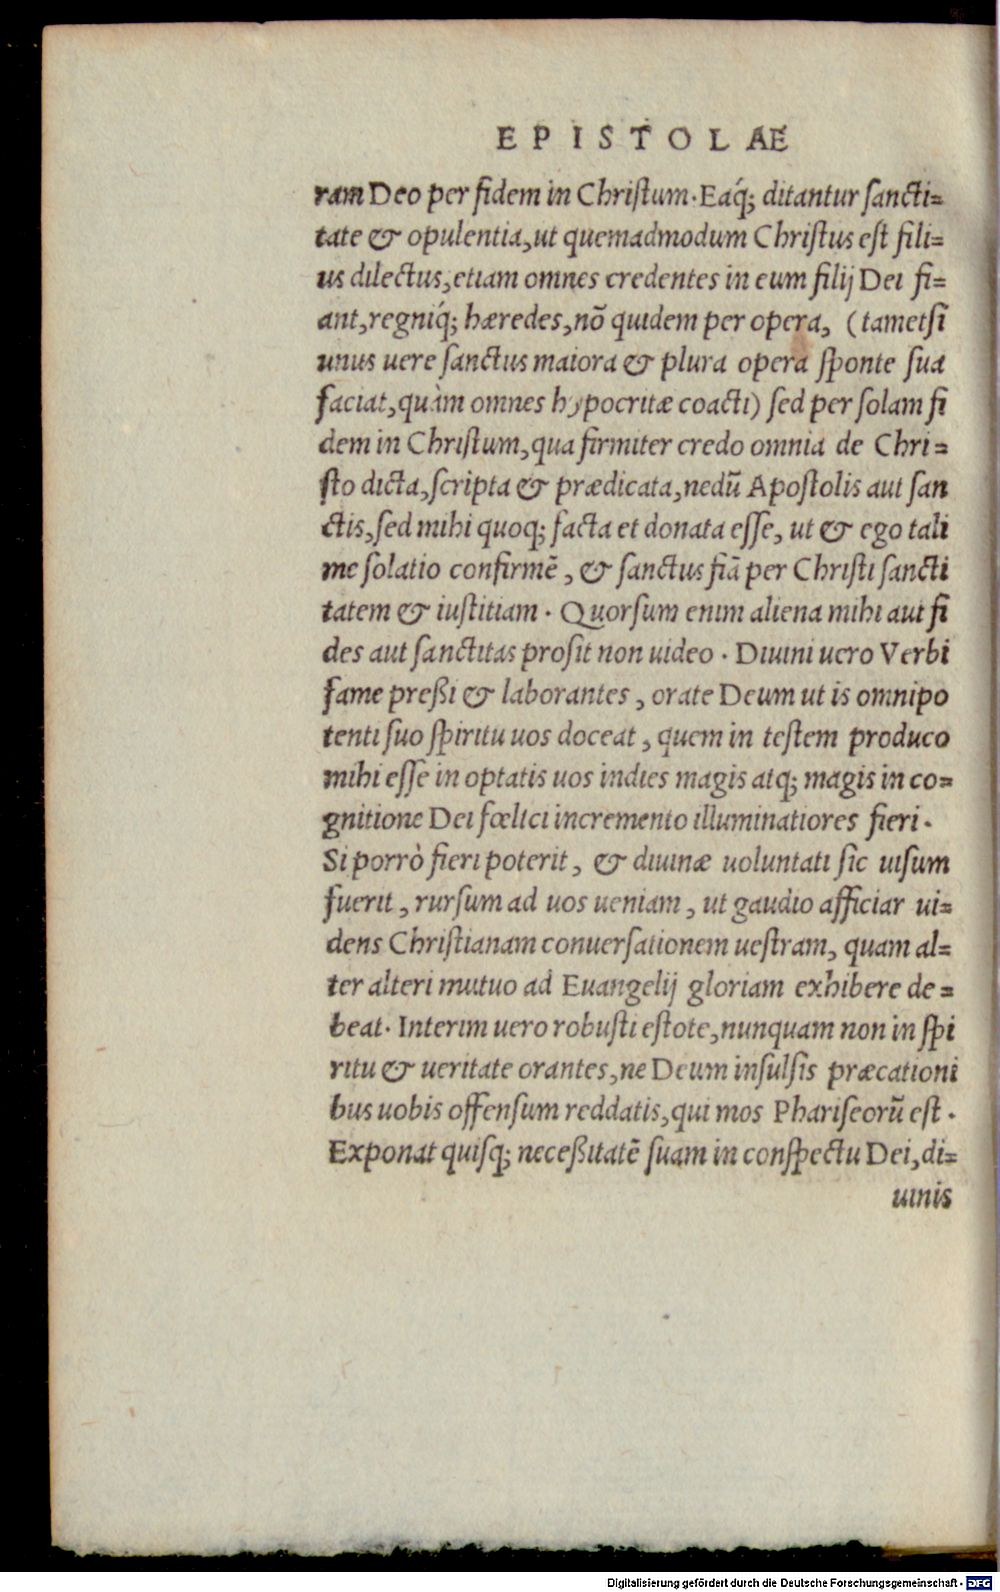 EPISTOLAE
ram Deo per fidem in Christum. Eaq́; ditantur sancti=
tate & opulentia, ut quemadmodum Christus est fili=
us dilectus, etiam omnes credentes in eum filij Dei fi=
ant, regniq́; hæredes, nõ quidem per opera, (tametsi
unus uere sanctus maiora & plura opera sponte sua
faciat, quàm omnes hypocritæ coacti) sed per solam fi
dem in Christum, qua firmiter credo omnia de Chri=
sto dicta, scripta & prædicata, nedũ Apostolis aut san
ctis, sed mihi quoq; facta et donata esse, ut & ego tali
me solatio confirmẽ, & sanctus fiã per Christi sancti
tatem & iustitiam. Quorsum enim aliena mihi aut fi
des aut sanctitas prosit non uideo. Diuini uero Verbi
fame preßi & laborantes, orate Deum ut is omnipo
tenti suo spiritu uos doceat, quem in testem produco
mihi esse in optatis uos indies magis atq; magis in co=
gnitione Dei fœlici incremento illuminatiores fieri.
Si porrò fieri poterit, & diuinæ uoluntati sic uisum
fuerit, rursum ad uos ueniam, ut gaudio afficiar ui=
dens Christianam conuersationem uestram, quam al=
ter alteri mutuo ad Euangelij gloriam exhibere de=
beat. Interim uero robusti estote, nunquam non in spi
ritu & ueritate orantes, ne Deum insulsis præcationi
bus uobis offensum reddatis, qui mos Phariseorũ est.
Exponat quisq; neceßitatẽ suam in conspectu Dei, di=
uinis
Digitalisierung gefördert durch die Deutsche Forschungsgemeinschaft - DFG